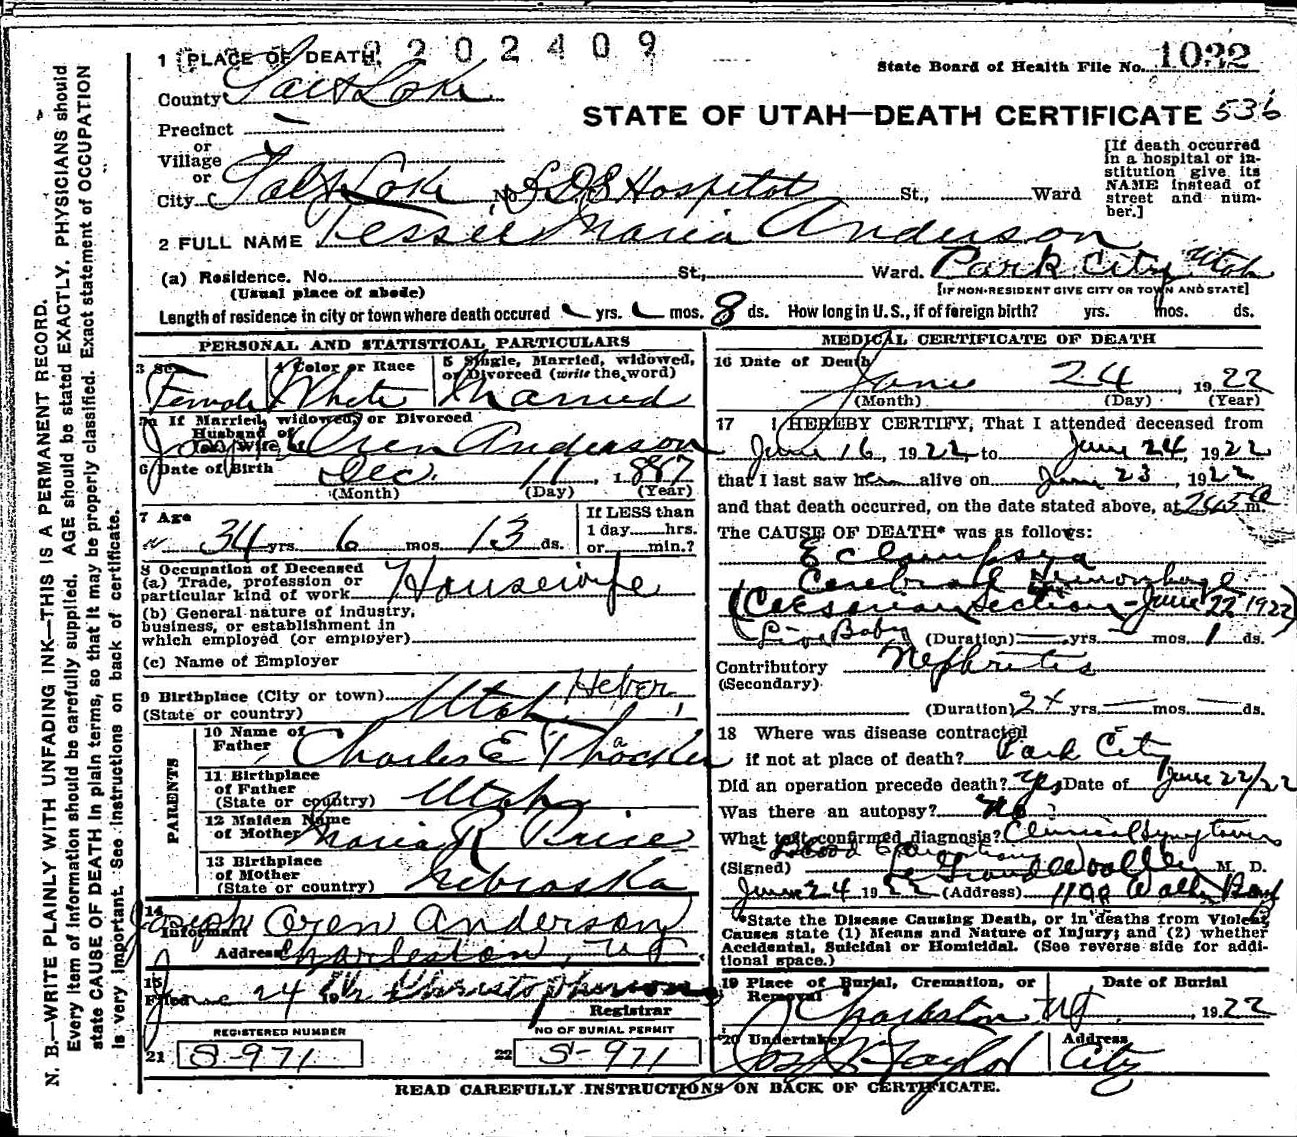 8202409
1 PLACE OF DEATH,
State Board of Health File No. 1032
County Salt Lake
STATE OF UTAH—DEATH CERTIFICATE 536
Precinct —
or
Village
or
City Salt Lake No. LDS Hospital St., Ward
[If death occurred in a hospital or institution give its NAME instead of street and number.]
2 FULL NAME Tessie Maria Anderson
(a) Residence. No. St., Ward. Park City Utah
(Usual place of abode) [IF NON-RESIDENT GIVE CITY OR TOWN AND STATE]
Length of residence in city or town where death occured yrs. mos. 8 ds. How long in U.S., if of foreign birth? yrs. mos. ds.
PERSONAL AND STATISTICAL PARTICULARS
3 Sex Female
4 Color or Race White
5 Single, Married, widowed, or Divorced (write the word) Married
5a If Married, widowed, or Divorced
Husband of
(or) Wife of Oren Anderson
6 Date of Birth Dec. 11, 1887
(Month) (Day) (Year)
7 Age 34 yrs. 6 mos. 13 ds.
If LESS than
1 day hrs.
or min.?
8 Occupation of Deceased
(a) Trade, profession or
particular kind of work Housewife
(b) General nature of industry,
business, or establishment in
which employed (or employer)
(c) Name of Employer
9 Birthplace (City or town) Heber,
(State or country) Utah
PARENTS
10 Name of
Father Charles E Thacker
11 Birthplace
of Father
(State or country) Utah
12 Maiden Name
of Mother Maria R Price
13 Birthplace
of Mother
(State or country) Nebraska
14
Informant Joseph Oren Anderson
Address Charleston, Ut.
15
Filed June 24 19
Registrar
REGISTERED NUMBER
21 S-971
NO OF BURIAL PERMIT
22 S-971
MEDICAL CERTIFICATE OF DEATH
16 Date of Death
June 24, 1922
(Month) (Day) (Year)
17 I HEREBY CERTIFY, That I attended deceased from
June 16, 1922, to June 24, 1922
that I last saw her alive on June 23, 1922
and that death occurred, on the date stated above, at 245 a m.
The CAUSE OF DEATH* was as follows:
Eclampsya
Cerebral Hemorrhage
(Caesarian Section - June 22 1922)
(Live Baby (Duration) yrs. mos. 1 ds.
Contributory Nephritis
(Secondary)
(Duration) 2 yrs. — mos. — ds.
18 Where was disease contracted
if not at place of death? Park City
Did an operation precede death? yes Date of June 22/22
Was there an autopsy? No
What test confirmed diagnosis? Clinical Symptoms
Blood
(Signed) M. D.
June 24 1922 (Address)
*State the Disease Causing Death, or in deaths from Violent Causes state (1) Means and Nature of Injury; and (2) whether Accidental, Suicidal or Homicidal. (See reverse side for additional space.)
19 Place of Burial, Cremation, or Removal
Charleston Ut.
Date of Burial
, 1922
20 Undertaker
Jos. Taylor
Address
City
READ CAREFULLY INSTRUCTIONS ON BACK OF CERTIFICATE.
N. B.—WRITE PLAINLY WITH UNFADING INK—THIS IS A PERMANENT RECORD.
Every item of information should be carefully supplied. AGE should be stated EXACTLY. PHYSICIANS should
state CAUSE OF DEATH in plain terms, so that it may be properly classified. Exact statement of OCCUPATION
is very important. See instructions on back of certificate.